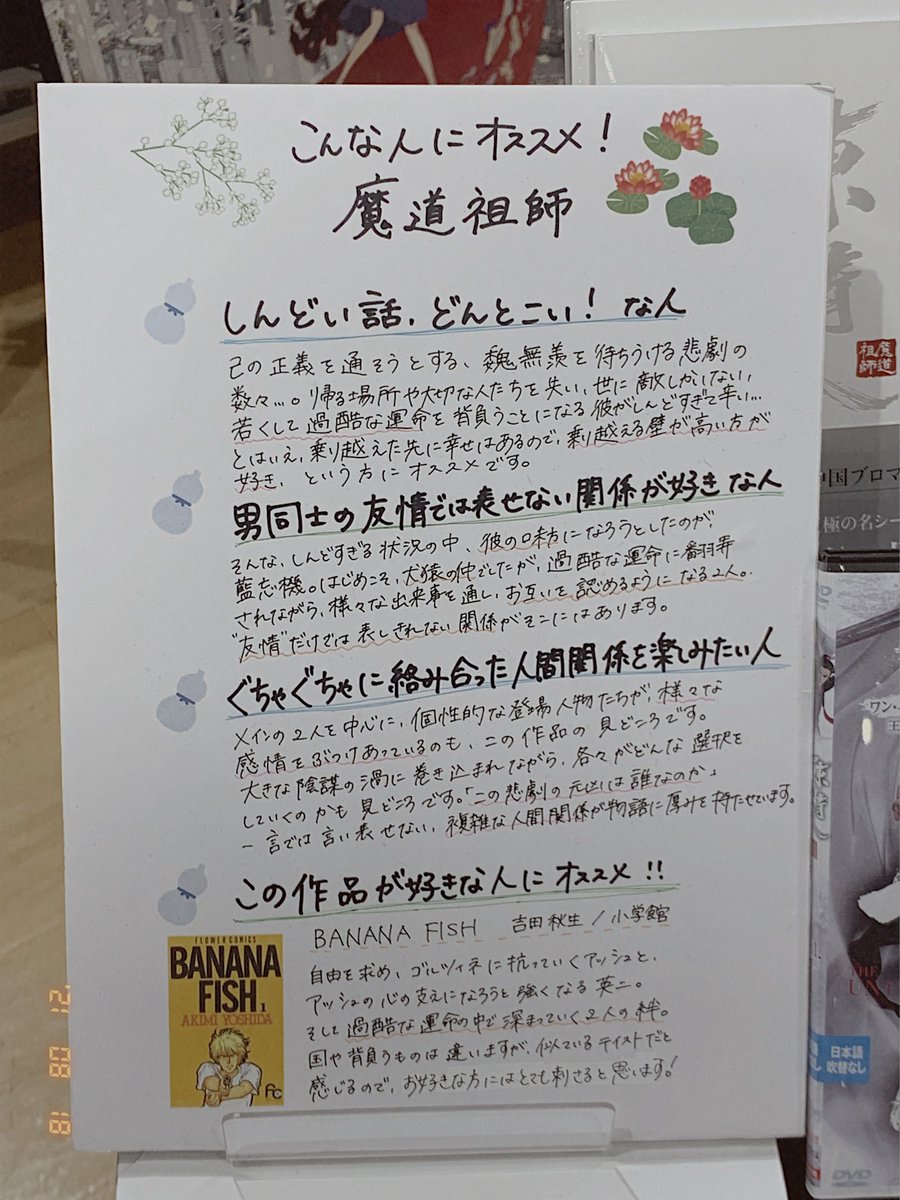 こんな人にオススメ!
魔道祖師
しんどい話、どんとこい! な人
己の正義を通そうとする、魏無羨を待ちうける悲劇の
数々…。帰る場所や大切な人たちを失い、世に敵しかいない、
若くして過酷な運命を背負うことになる彼がしんどすぎて辛い…
とはいえ、乗り越えた先に幸せはあるので、乗り越える壁が高い方が
好き、という方にオススメです。
男同士の友情では表せない関係が好きな人
そんな、しんどすぎる状況の中、彼の味方になろうとしたのが、
藍忘機。はじめこそ、犬猿の仲でしたが、過酷な運命に翻弄
されながら、様々な出来事を通し、お互いを認めるようになる2人。
"友情"だけでは表しきれない関係がそこにはあります。
ぐちゃぐちゃに絡み合った人間関係を楽しみたい人
メインの2人を中心に、個性的な登場人物たちが、様々な
感情をぶつけあっているのも、この作品の見どころです。
大きな陰謀の渦に巻き込まれながら、各々がどんな選択を
していくのかも見どころです。「この悲劇の元凶は誰なのか」
一言では言い表せない、複雑な人間関係が物語に厚みを持たせています。
この作品が好きな人にオススメ!!
BANANA FISH 吉田秋生/小学館
自由を求め、ゴルツィネに抗っていくアッシュと、
アッシュの心の支えになろうと強くなる英二。
そして過酷な運命の中で深まっていく2人の絆。
国や背負うものは違いますが、似ているテイストだと
感じるので、お好きな方にはとても刺さると思います!
FLOWER COMICS
BANANA
FISH 1
AKIMI YOSHIDA
FC
魔道
祖師
中国ブロマ
極の名シー
ワン・
王
THE
UN
日本語
吹替なし
DVD
21 08 18